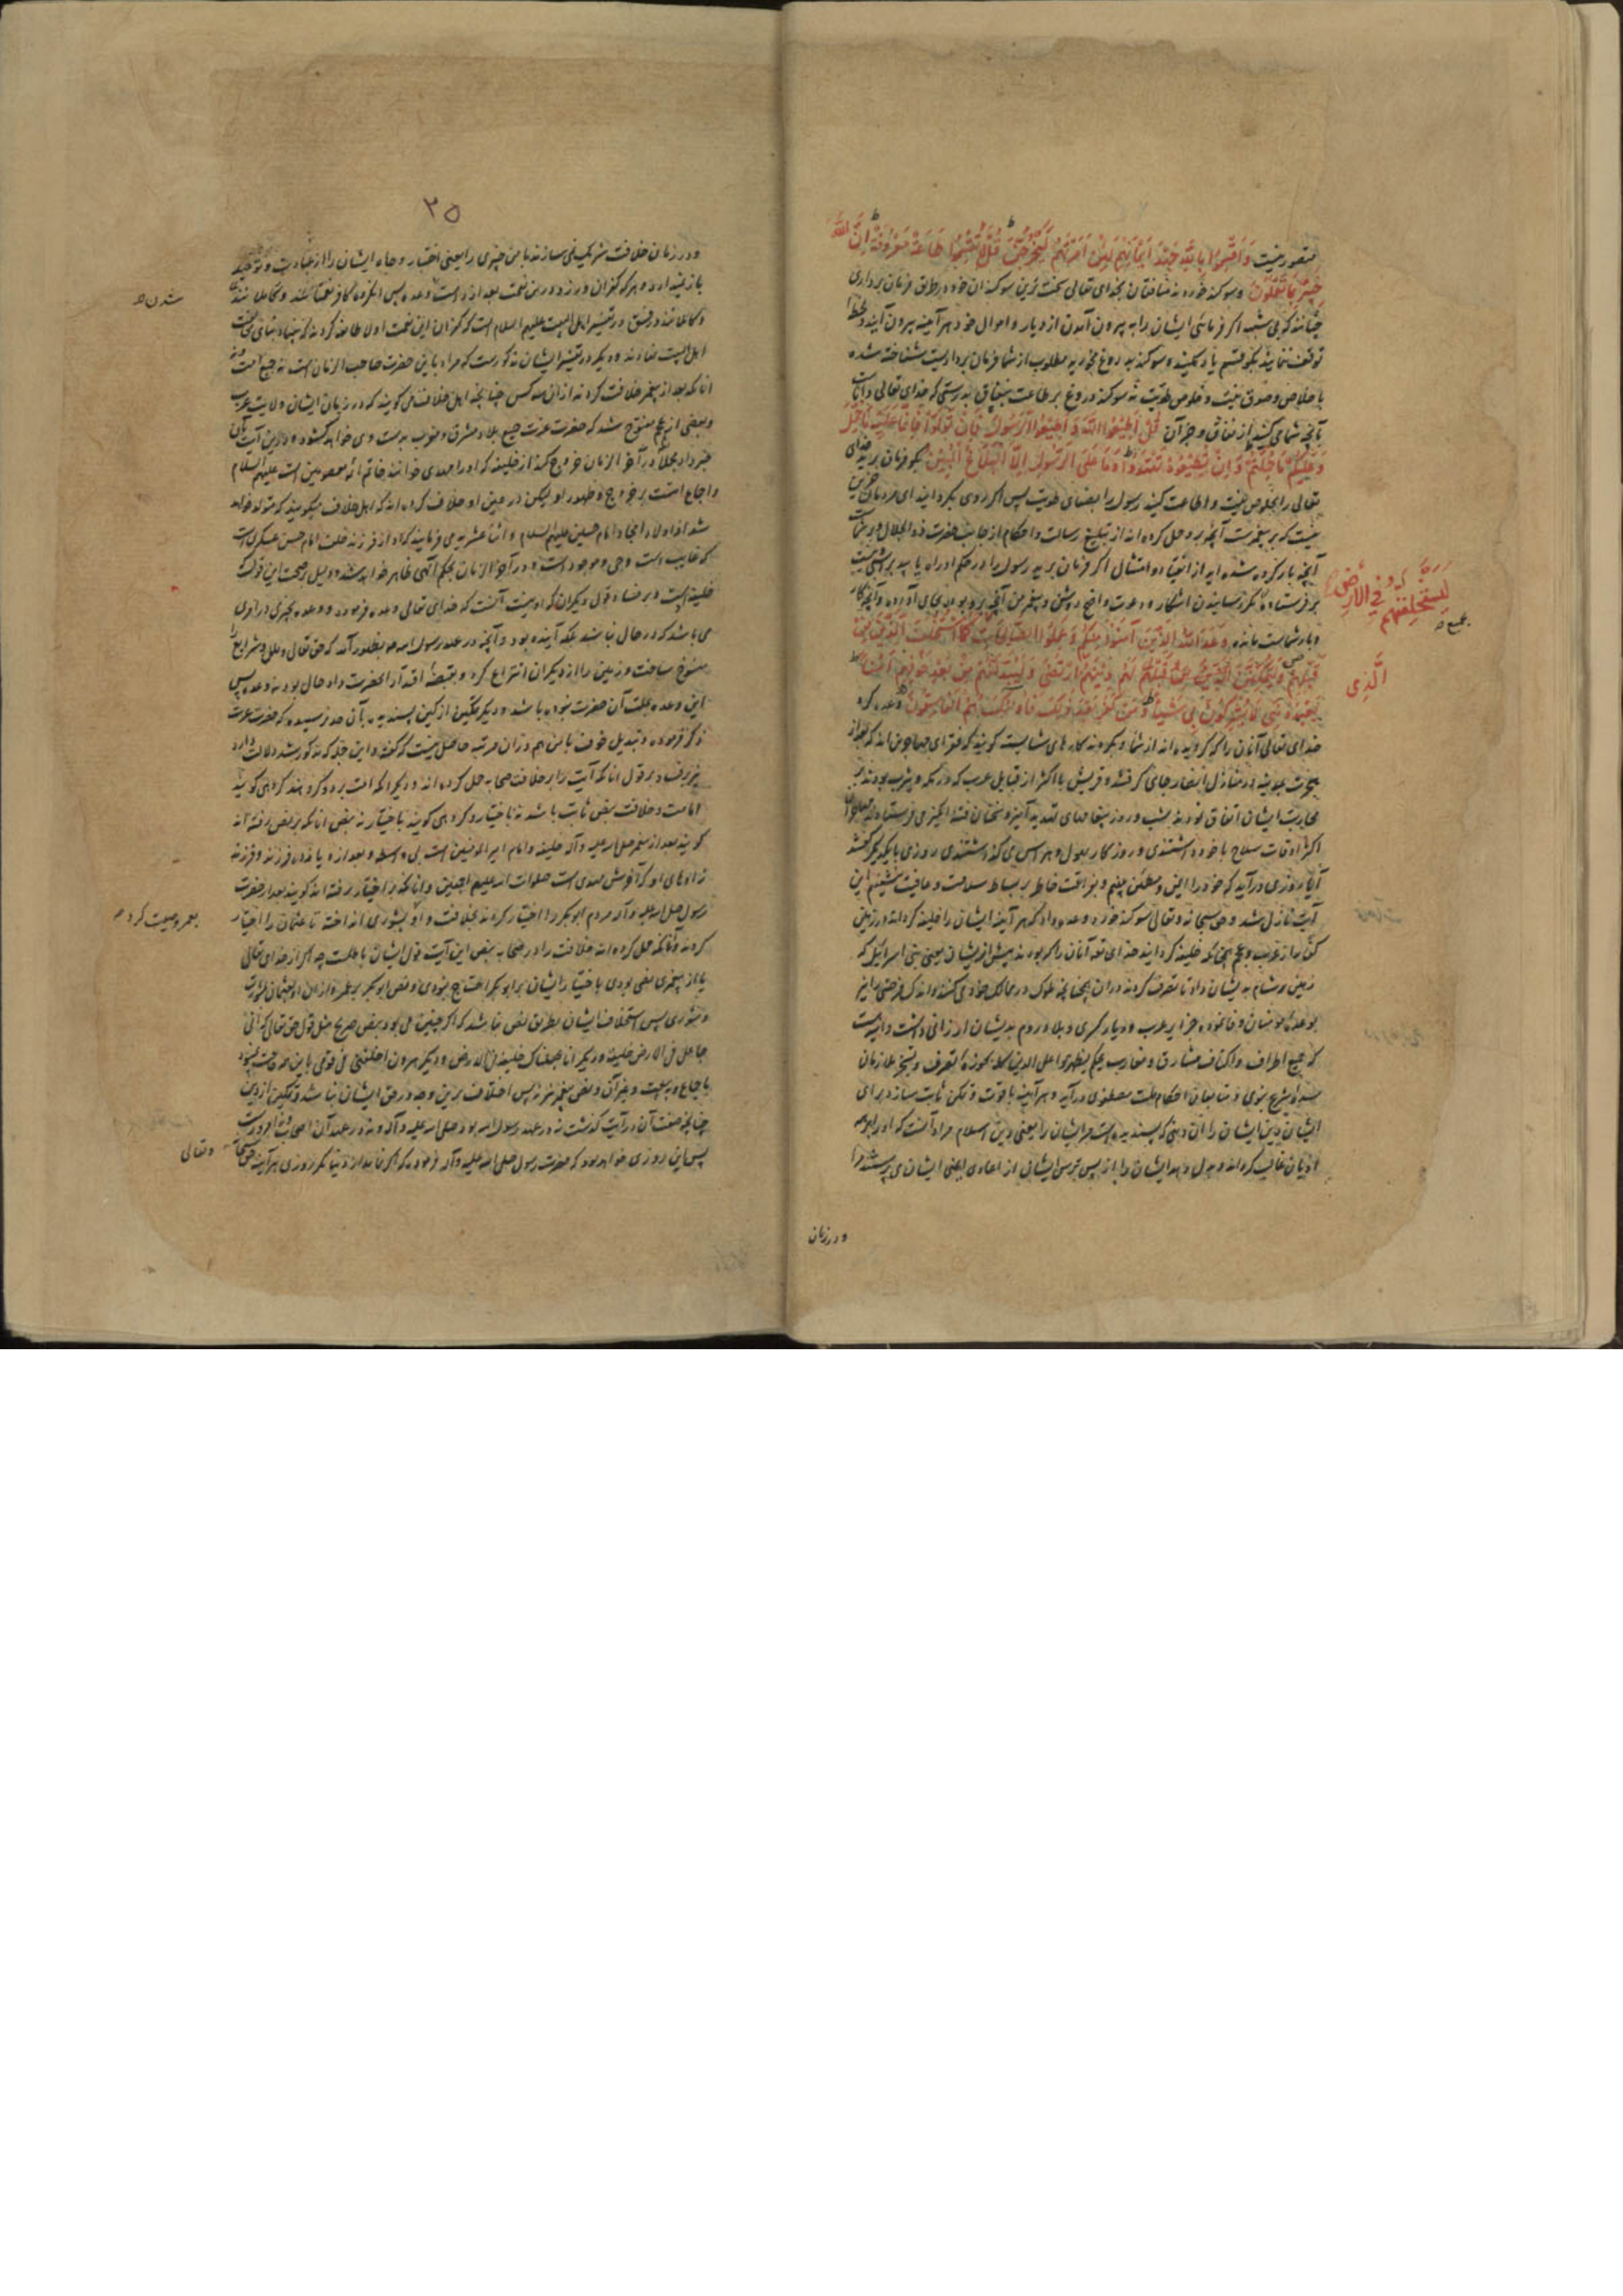 مقصور نیست وَاَقْسَمُوا بِاللهِ جَهْدَ اَیْمَانِهِمْ لَئِنْ اَمَرْتَهُمْ لَیَخْرُجُنَّ قُلْ لَا تُقْسِمُوا طَاعَةٌ مَعْرُوفَةٌ اِنَّ اللهَ
خَبِیرٌ بِمَا تَعْمَلُونَ و سوکند خوردند منافقان بخدای تعالی سخت ترین سوکندان خود بر طبق فرمان برداری
چنانکه بی شبهه اکر فرمائی ایشان را به بیرون آمدن از دیار و اموال خود هر آینه بیرون آیند و
توقف ننمایند بکو قسم یاد مکنید و سوکند به دروغ مخورید مطلوب از شما فرمان برداریست شناخته شده
باخلاص و صدق نیت و خلوص طویت نه سوکند دروغ بر طاعت بنفاق بدرستی که خدای تعالی داناست
بآنچه شما می کنید از نفاق و جز آن قُلْ اَطِیعُوا اللهَ وَاَطِیعُوا الرَّسُولَ فَاِنْ تَوَلَّوْا فَاِنَّمَا عَلَیْهِ مَا حُمِّلَ
وَعَلَیْکُمْ مَا حُمِّلْتُمْ وَاِنْ تُطِیعُوهُ تَهْتَدُوا وَمَا عَلَی الرَّسُولِ اِلَّا الْبَلَاغُ الْمُبِینُ بکو فرمان برید خدای
تعالی را بخلوص نیت و اطاعت کنید رسول را بصفای طویت پس اکر روی بکردانید ای مردمان جز این
نیست که بر پیغمبرست آنچه برو حمل کرده اند از تبلیغ رسالت و احکام از جانب حضرت ذو الجلال و بر شماست
آنچه بار کرده شده اید از انقیاد و امتثال اکر فرمان برید رسول را در حکم او راه یابید براستی و نیست
بر فرستاده مکر رسانیدن اشکار و دعوت واضح روشن و پیغمبر من آنچه برو بود بجای آورده و آنچه کار
و بار شماست مانده وَعَدَ اللهُ الَّذِینَ آمَنُوا مِنْکُمْ وَعَمِلُوا الصَّالِحَاتِ کَمَا اسْتَخْلَفَ الَّذِینَ مِنْ
قَبْلِهِمْ وَلَیُمَکِّنَنَّ لَهُمْ دِینَهُمُ ارْتَضَی وَلَیُبَدِّلَنَّهُمْ مِنْ بَعْدِ خَوْفِهِمْ اَمْنًا
یَعْبُدُونَنِی لَا یُشْرِکُونَ بِی شَیْئًا وَمَنْ کَفَرَ بَعْدَ ذَلِکَ فَاُولَئِکَ هُمُ الْفَاسِقُونَ وعده کرد
خدای تعالی آنان را که کرویده اند از شما و بکردند کارهای شایسته کویند که فقرای مهاجرین اند که بعد از
هجرت بمدینه در منازل انصار جای کرفتند و قریش با اکثر از قبایل عرب که در مکه و یثرب بودند بر
محاربت ایشان اتفاق نمودند بشب و روز پیغامهای تهدید آمیز و سخنان فتنه انکیز می فرستادند
اکثر اوقات سلاح با خود داشتندی و روزکار بملول و هراس می کذاشتندی روزی با یکدیکر کفتند
آیا روزی در آید که خود را ایمن و مطمئن بینیم و بفراغت خاطر بر بساط سلامت و عافیت نشینیم این
آیت نازل شد و حق سبحانه و تعالی سوکند خورد و وعده داد که هر آینه ایشان را خلیفه کرداند در زمین
کفار از عرب و عجم همچنانکه خلیفه کردانید خدای تع آنان را که بودند پیش از ایشان یعنی بنی اسرائیل که
زمین مصر و شام بدیشان داد تا تصرف کردند در آن چنانچه ملوک در ممالک خود می کنند و اندک فرصتی را نیز
بوعده مؤمنان وفا نموده جزایر عرب و دیار کسری و بلاد روم بدیشان ارزانی داشت و امیدست
که جمیع اطراف و اکناف مشارق و مغارب بحکم لیظهره علی الدین کله بحوزه تصرف و تسخیر ملازمان
شرع نبوی و متابعان احکام ملت مصطفوی درآید و هر آینه باقوت و تمکن ثابت سازد برای
ایشان دین ایشان را آن دینی که پسندیده است مر ایشان را یعنی دین اسلام مراد آنست که او را بر همه
ادیان غالب کرداند و بدل دهد ایشان را از پس ترس ایشان از اعادی ایمنی ایشان می پرستند مرا
لَیَسْتَخْلِفَنَّهُمْ فِی الْاَرْضِ
جمیع
الَّذِی
در زمان
۳۵
و در زمان خلافت شریک نمی سازند با من چیزی را یعنی اختیار و جاه ایشان را از عبادت و توحید
باز نمیدارد و هر که کفران ورزد درین نعمت بعد از راست وعده پس آنکروه کافر نعمتانند و کاملانند
و کاملانند در فسق و در تفسیر اهل البیت علیهم السلام است که کفران این نعمت اولا طایفه کردند که بنیاد بنای
اهل البیت نهادند و دیکر در تفسیر ایشان مذکورست که مراد باین حضرت صاحب الزمان است نه جمیع امت و نه
آنانکه بعد از پیغمبر خلافت کردند از آن سه کس چنانچه اهل خلافت می کویند که در زمان ایشان ولایت عرب
و بعضی از عجم مفتوح شد که حضرت عزت جمیع بلاد مشرق و مغرب بدست وی خواهد کشود و درین آیت بآن
خبر داد مجملا در آخر الزمان خروج کند از خلیفه که او را مهدی خوانند خاتم ائمه معصومین است علیهم السلام
و اجماع امتست بر خروج و ظهور او لیکن در عین او خلاف کرده اند که اهل خلاف میکویند که متولد خواهد
شد از اولاد امجاد امام حسین علیهم السلام و اثنا عشریه می فرمایند که او از فرزند خلف امام حسن عسکری است
که غایب است و حی و موجود است و در آخر الزمان بحکم آلهی ظاهر خواهد شد و دلیل بر صحت این قول که
خلیفه است و بر فساد قول دیکران که او نیست آنست که خدای تعالی وعده فرموده و وعده بچیزی در اول
می باشد که در حال نباشد بلکه آینده بود و آنچه در عهد رسول الله صم بظهور آمد که حق تعالی و ملل و شرایع را
منسوخ ساخت و زمین را از دیکران انتزاع کرد و بقبضه اقتدار آنحضرت داد حال بود نه وعده پس
این وعده بملت آن حضرت نبوده باشد و دیکر تمکین از کین پسندیده بآن حد نرسیده که حضرت عزت
ذکر فرموده و تبدیل خوف بامن هم در آن مرتبه حاصل نیست که کفته و این جمله که مذکور شد دلالت دارد
نیز بر فساد بر قول آنانکه آیت را بر خلافت صحابه حمل کرده اند و دیکر آنکه امت بر دو کروهند کروهی کویند
امامت و خلافت بنص ثابت باشد نه باختیار و کروهی کویند باختیار نه بنص آنانکه بر نص رفته اند
کویند بعد از پیغمبر صلی الله علیه و آله خلیفه و امام امیر المؤمنین است بی واسطه و بعد از او یازده فرزند و فرزند
زادهای او که آخرش مهدی است صلوات الله علیهم اجمعین و آنانکه بر اختیار رفته اند کویند بعد از حضرت
رسول صلی الله علیه و آله مردم ابوبکر را اختیار کردند بخلافت و او بشوری انداخته تا عثمان را اختیار
کردند و آنانکه حمل کرده اند خلافت را در صحابه بنص این آیت قول ایشان باطلست چه اکر از خدای تعالی
یا از پیغمبری نصی بودی باختیار ایشان بر ابوبکر احتیاج نبودی و نص ابوبکر بر عمر و از آن او بعثمان بشورت
و شوری پس استخلاف ایشان بطریق نص نباشد که اکر چنین می بود بنص صریح مثل قول حق تعالی که انی
جاعل فی الارض خلیفة و دیکر انا جعلناک خلیفة فی الارض و دیکر هرون اخلفنی فی قومی باین موقوف نبود
باجماع و بیعت و بقرآن و نص پیغمبر نیز نه پس اختلاف برین وجه در حق ایشان نباشد و تمکین از دین
چنانچه صفت آن در آیت کذشت نه در عهد رسول الله بود صلی الله علیه و آله و نه در عهد آن اصحاب و نه امروزست
پس این روزی خواهد بود که حضرت رسول صلی الله علیه و آله فرموده که اکر نماند از دنیا مکر روزی هر آینه حق سبحانه
شدن
بعمر وصیت کرد
و تعالی